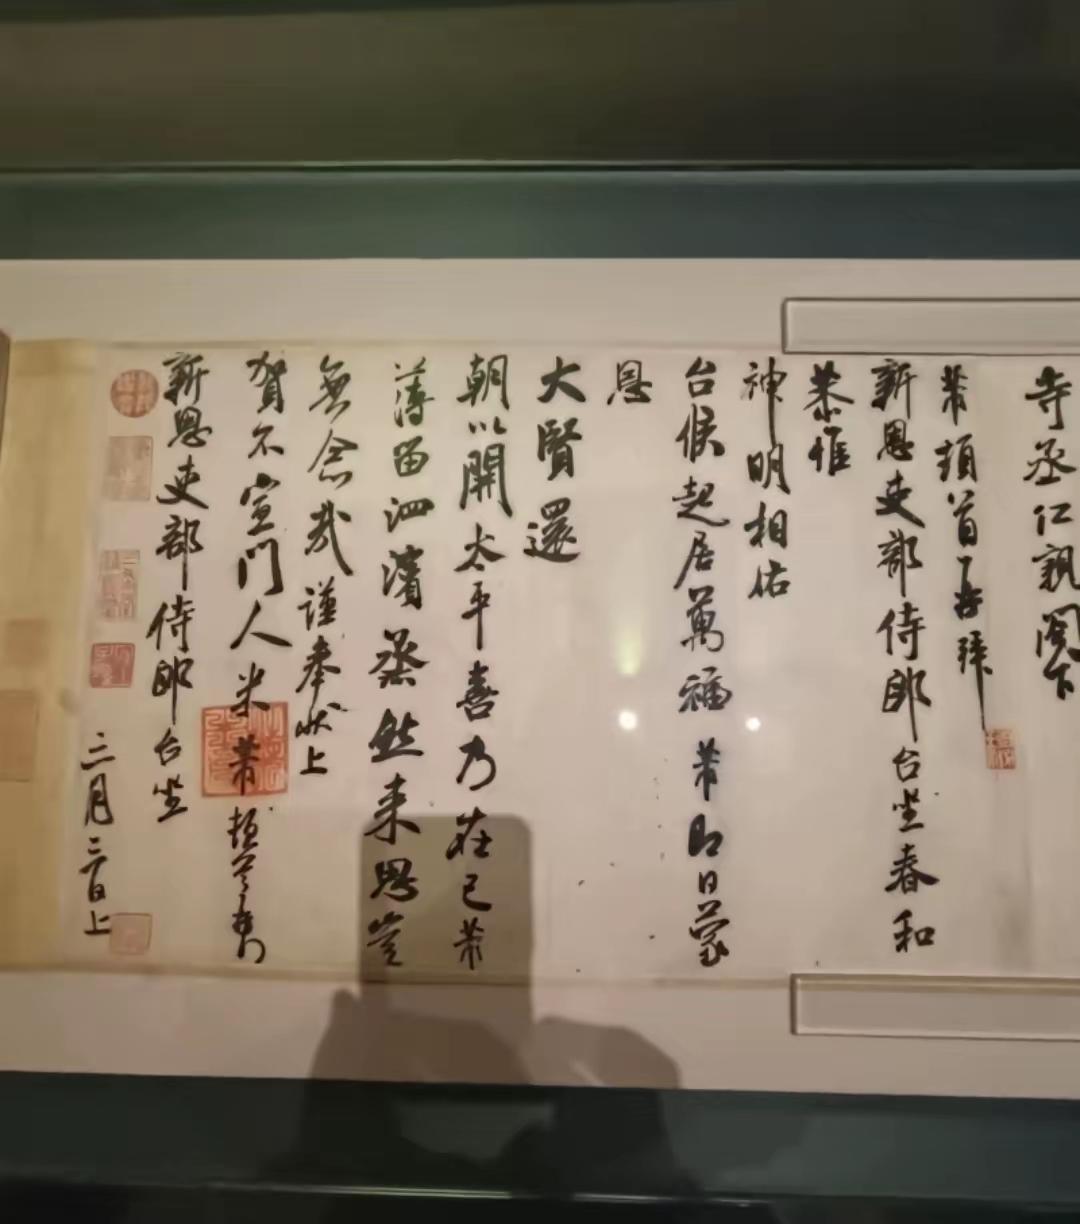 寺丞仁親閣下
芾頓首再拜
新恩吏部侍郎台坐春和
恭惟
神明相佑
台候起居萬福芾即日蒙
恩
大賢還
朝以開太平喜乃在己芾
薄留泗濱烝然来思豈
無念哉謹奉狀上
賀不宣門人米芾頓首再拜
新恩吏部侍郎台坐
二月三日上